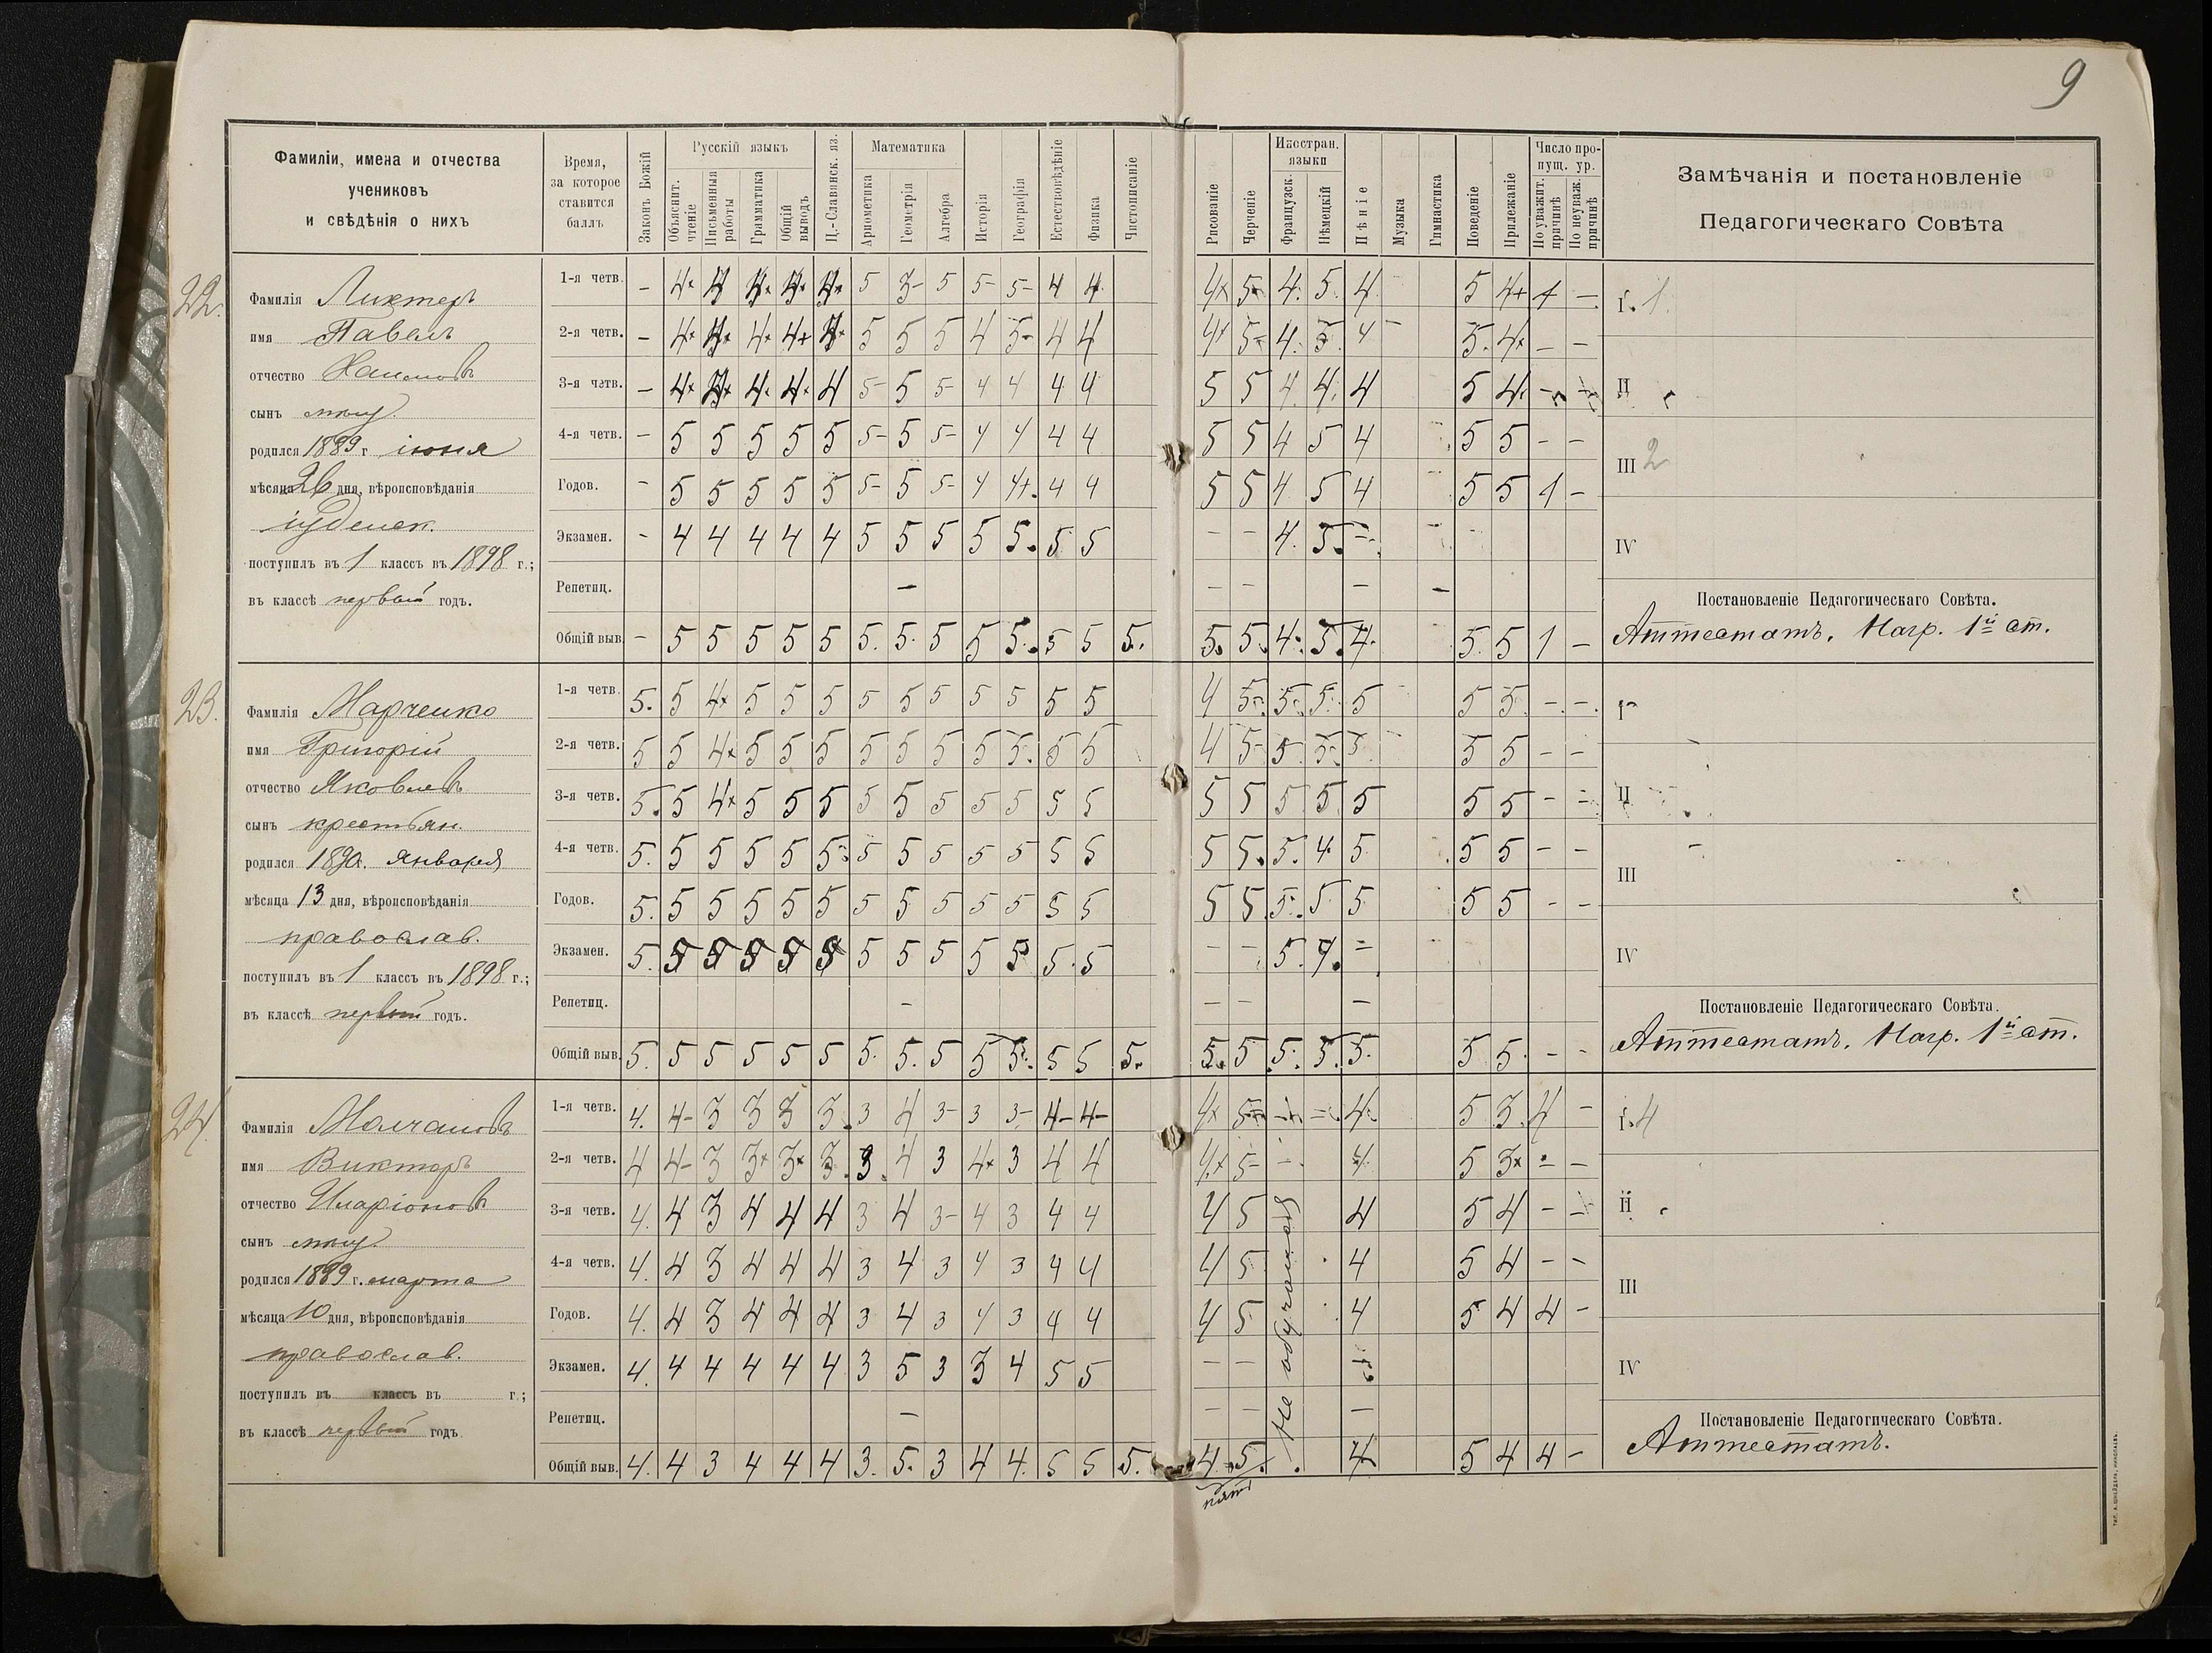 9
Фамиліи, имена и отчества
учениковъ
и свѣдѣнія о нихъ
Время,
за которое
ставится
баллъ
Законъ Божій
Русскій языкъ
Объяснит. чтеніе
Письменныя работы
Грамматика
Общій выводъ
Ц.-Славянск. яз.
Математика
Ариѳметика
Геометрія
Алгебра
Исторія
Географія
Естествовѣдѣніе
Физика
Чистописаніе
Рисованіе
Черченіе
Иностран. языки
Французск.
Нѣмецкій
Пѣніе
Музыка
Гимнастика
Поведеніе
Прилежаніе
Число про-
пущ. ур.
По уважит. причинѣ
По неуваж. причинѣ
Замѣчанія и постановленіе
Педагогическаго Совѣта
22.
Фамилія Лихтеръ
имя Павелъ
отчество
сынъ мѣщ.
родился 1889 г іюня
мѣсяца 26 дня, вѣроисповѣданія
іудейск.
поступилъ въ 1 классъ въ 1898 г.;
въ классѣ первый годъ.
1-я четв. – 4+ 4 4+ 4+ 4+ 5 3- 5 5- 5- 4 4 4+ 5- 4. 5. 4. 5 4+ 1 –
2-я четв. – 4+ 4+ 4+ 4+ 4+ 5 5 5 4 5- 4 4 4+ 5- 4. 5. 4 5. 4+ – –
3-я четв. – 4+ 4+ 4+ 4+ 4 5- 5 5- 4 4 4 4 5 5 4. 4. 4 5 4. – –
4-я четв. – 5 5 5 5 5 5- 5 5- 4 4 4 4 5 5 4 5 4 5 5 – –
Годов. – 5 5 5 5 5 5- 5 5- 4 4+. 4 4 5 5 4 5 4 5 5 1 –
Экзамен. – 4 4 4 4 4 5 5 5 5 5. 5 5 – – 4. 5. –
Репетиц. – – – – –
Общій выв. – 5 5 5 5 5 5. 5. 5 5 5. 5 5 5. 5. 5. 4. 5. 4. 5. 5 1 –
I. 1.
II
III 2
IV
Постановленіе Педагогическаго Совѣта.
Аттестатъ. Нагр. 1й ст.
23.
Фамилія Марченко
имя Григорій
отчество Яковлевъ
сынъ крестьян.
родился 1890. января
мѣсяца 13 дня, вѣроисповѣданія
православ.
поступилъ въ 1 классъ въ 1898 г.;
въ классѣ первый годъ.
1-я четв. 5. 5 4+ 5 5 5 5 5 5 5 5 5 5 4 5-. 5-. 5. 5 5 5. – –
2-я четв. 5 5 4+ 5 5 5 5 5 5 5 5. 5 5 4 5- 5. 5. 5. 5 5 – –
3-я четв. 5. 5 4+ 5 5 5 5 5 5 5 5 5 5 5 5 5 5 5 5 5 – –
4-я четв. 5. 5 5 5 5 5 5 5 5 5 5 5 5 5 5. 5. 4. 5. 5 5 – –
Годов. 5. 5 5 5 5 5 5 5 5 5 5 5 5 5 5. 5. 5 5 5 5 – –
Экзамен. 5. 5 5 5 5 5 5 5 5 5 5 5. 5 – – 5. 4. –
Репетиц. – – – –
Общій выв. 5. 5 5 5 5 5 5. 5. 5 5 5. 5 5 5. 5. 5 5. 5. 5. 5 5. – –
I
II
III
IV
Постановленіе Педагогическаго Совѣта.
Аттестатъ. Нагр. 1й ст.
24.
Фамилія Молчановъ
имя Викторъ
отчество Иларіоновъ
сынъ мѣщ.
родился 1889 г. марта
мѣсяца 10 дня, вѣроисповѣданія
православ.
поступилъ въ классъ въ г.;
въ классѣ первый годъ
1-я четв. 4. 4- 3 3 3 3. 3 4 3- 3 3- 4- 4- 4+ 5- – – 4. 5 3. 4 –
2-я четв. 4 4- 3 3+ 3+ 3. 3. 4 3 4+ 3 4 4 4+ 5- – 4 5 3+ – –
3-я четв. 4. 4 3 4 4 4 3 4 3- 4 3 4 4 4 5 4 5 4 – –
4-я четв. 4. 4 3 4 4 4 3 4 3 4 3 4 4 4 5 4 5 4 – –
Годов. 4. 4 3 4 4 4 3 4 3 4 3 4 4 4 5. 4 5 4 4 –
Экзамен. 4. 4 4 4 4 4 3 5 3 3 4 5 5 – – –
Репетиц. – – – –
Общій выв. 4. 4 3 4 4 4 3. 5. 3 4 4. 5 5 5. 4. 5. 4. 5 4 4 –
Не обучался
пять
I. 4
II
III
IV
Постановленіе Педагогическаго Совѣта.
Аттестатъ.